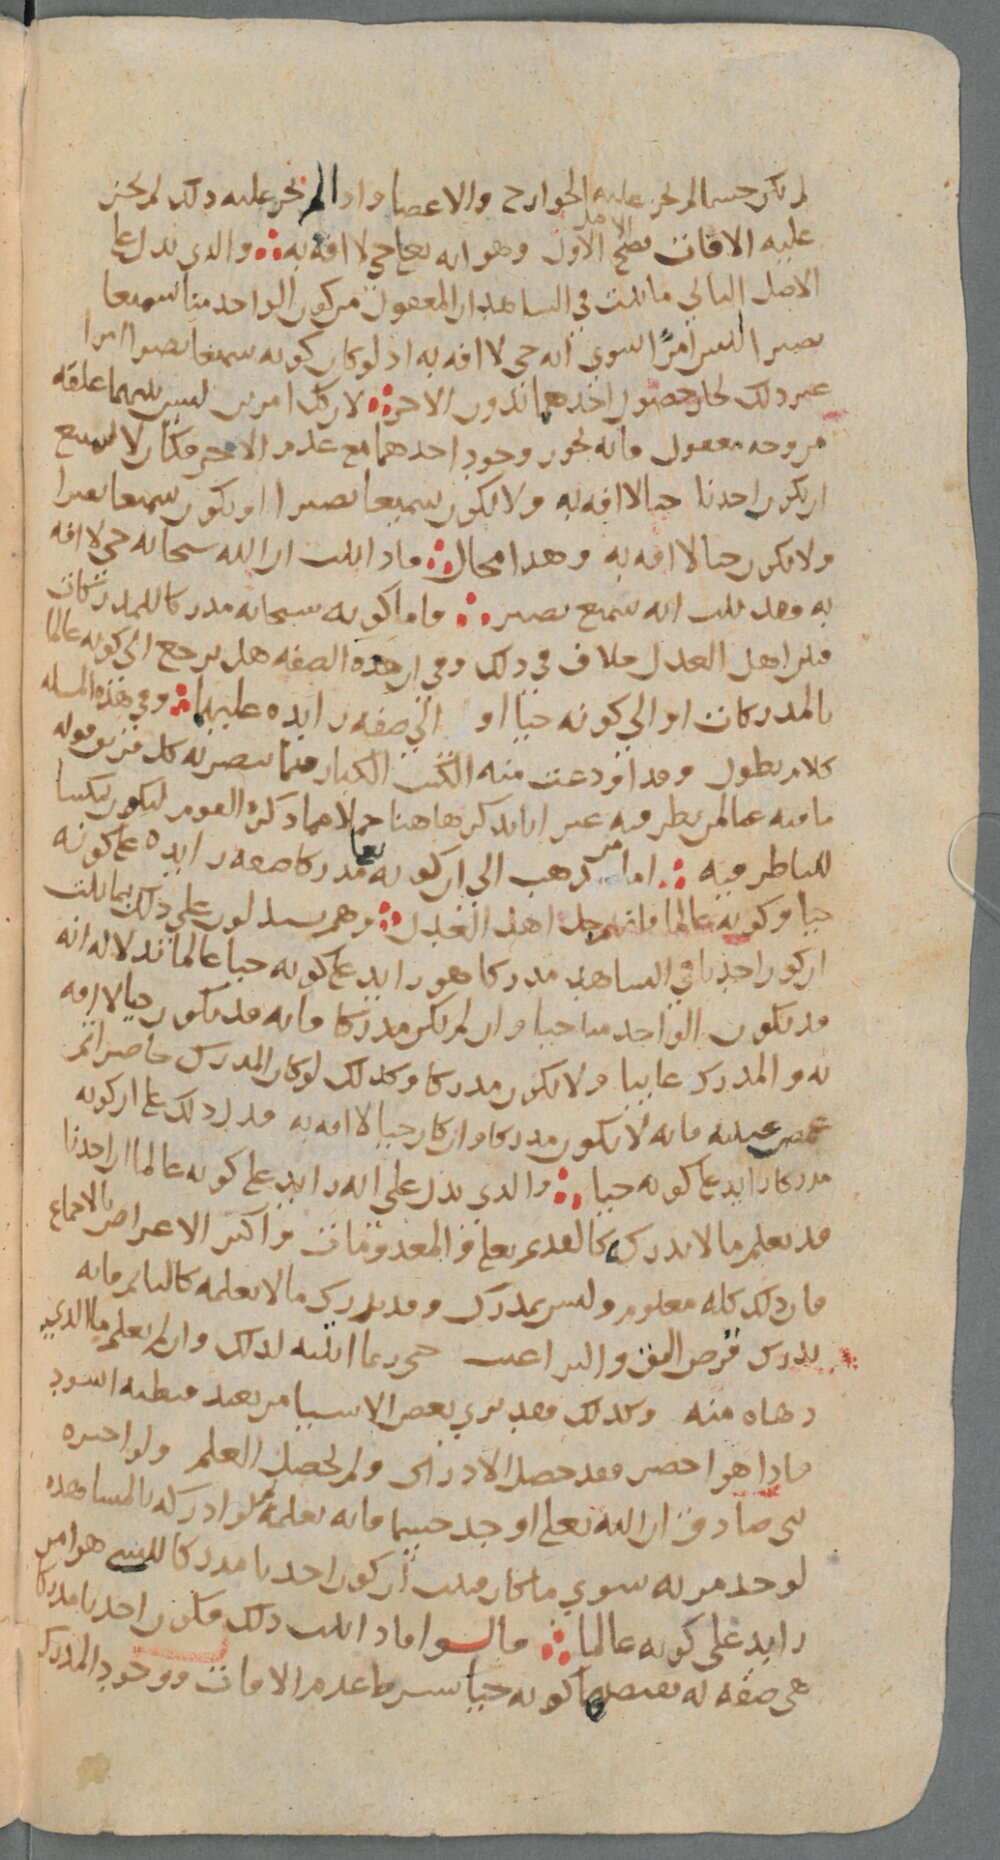 لم يكن جسما لم يجز عليه الجوارح والاعضا واذا لم يجز عليه ذلك لم يجز
عليه الافات فصح الاصل الاول وهو انه تعالى حي لا افه به والذي يدل على
الاصل الثاني ما ثبت في الشاهد ان المعقول من كون الواحد منا سميعا
بصيرا ليس امرًا سوى انه حي لا افه به اذ لو كان كونه سميعا بصيرا امرا
غير ذلك لجاز حصول احدهما بدون الاخر لان كل امرين ليس بينهما علقه
من وجه معقول فانه يجوز وجود احدهما مع عدم الاخر فكان لا يمتنع
ان يكون احدنا حيا لا افه به ولا يكون سميعا بصيرا او يكون سميعا بصيرا
ولا يكون حيا لا افه به وهذا محال فاذا ثبت ان الله سبحانه حي لا افه
به فقد ثبت انه سميع بصير واما كونه سبحانه مدركا للمدركات
فبين اهل العدل خلاف في ذلك وفي ان هذه الصفه هل ترجع الى كونه عالما
بالمدركات او الى كونه حيا او الى صفه زايده عليهما وفي هذه المسله
كلام يطول وقد اودعت منه الكتب الكبار منا ينصر به كل فريق قوله
ما فيه عما لمن نظر فيه غير انا نذكر هاهنا جملا مما ذكره القوم ليكون تنبيها
للناظر فيه اما من ذهب الى ان كونه تعالى مدركا صفه زايده على كونه
حيا وكونه عالما فانهم جل اهل العدل وهم يستدلون على ذلك بما ثبت
ان كون احدنا في الشاهد مدركا هو زايد على كونه حيا عالما بدلاله انه
قد يكون الواحد منا حيا وان لم يكن مدركا فانه قد يكون حيا لا افه
به والمدرك غايبا ولا يكون مدركا وكذلك لو كان المدرك حاضرا ثم
غمض عينيه فانه لا يكون مدركا وان كان حيا لا افه به فدل ذلك على ان كونه
مدركا زايد على كونه حيا والذي يدل على انه زايد على كونه عالما ان احدنا
قد يعلم ما لا يدرك كالقديم تعالى والمعدومات واكثر الاعراض بالاجماع
فان ذلك كله معلوم وليس بمدرك وقد يدرك ما لا يعلمه كالنايم فانه
يدرك قرص البق والبراغيث حتى ربما انتبه لذلك وان لم يعلم ما الذي
دهاه منه وكذلك فقد يرى بعض الاشيا من بعيد فيظنه اسود
فاذا هو اخضر فقد حصل الادراك ولم يحصل العلم ولو اخبره
نبي صادق ان الله تعالى اوجد جسما فانه يعلمه ثم لو ادركه بالمشاهده
لوجد مزيه سوى ما كان فثبت ان كون احدنا مدركا للشي هو امر
زايد على كونه عالما قالوا فاذا ثبت ذلك فكون احدنا مدركا
هي صفه له يقتضيها كونه حيا بشرط عدم الافات ووجود المدرك